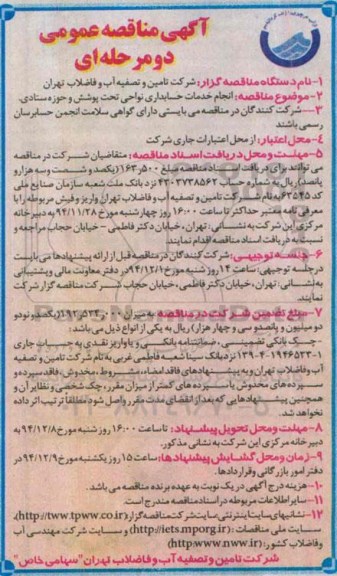 آگهی مناقصه عمومی
دو مرحله ای
۱-نام دستگاه مناقصه گزار: شرکت تامین و تصفیه آب و فاضلاب تهران
۲-موضوع مناقصه: انجام خدمات حسابداری نواحی تحت پوشش و حوزه ستادی.
۳-شرکت کنندگان در مناقصه می بایستی دارای گواهی سلامت انجمن حسابرسان
رسمی باشند
۴-محل اعتبار: از محل اعتبارات جاری شرکت
۵-مهلت و محل دریافت اسناد مناقصه: متقاضیان شرکت در مناقصه
می توانند برای دریافت اسناد مناقصه مبلغ ۱۶۳٫۵۰۰ (یکصد و شصت و سه هزار و
پانصد) ریال به شماره حساب ۴۳۰۳۷۳۸۵۶۲ نزد بانک ملت شعبه سازمان صنایع ملی
کد ۶۳۵۴۵ به نام شرکت تامین و تصفیه آب و فاضلاب تهران واریز و فیش مربوطه را با
معرفی نامه معتبر حداکثر تا ساعت ۱۶:۰۰ روز چهارشنبه مورخ ۹۴/۱۱/۲۸ به دبیرخانه
مرکزی این شرکت به نشانی: تهران، خیابان دکتر فاطمی - خیابان حجاب مراجعه و
نسبت به دریافت اسناد مناقصه اقدام نمایند.
۶-جلسه توجیهی: شرکت کنندگان در مناقصه قبل از ارائه پیشنهادها می بایست
در جلسه توجیهی: ساعت ۱۴ روز شنبه مورخ ۹۴/۱۲/۱ در دفتر معاونت مالی و پشتیبانی
به نشانی: تهران، خیابان دکتر فاطمی، خیابان حجاب شرکت مناقصه گزار شرکت
نمایند.
۷-مبلغ تضمین شرکت در مناقصه به میزان ۱۹۲٫۵۳۴٫۰۰۰ (یکصد و نود و دو
میلیون و پانصد و سی و چهار هزار) ریال به یکی از انواع ذیل می باشد:
-چک بانکی تضمینی، ضمانتنامه بانکی و یا واریز نقدی به حساب جاری
۱۳۹-۴-۱۹۴۶۵۳۳-۱ نزد بانک سینا شعبه فاطمی غربی به نام شرکت تامین و تصفیه
آب و فاضلاب تهران و به پیشنهادهای فاقد امضاء، مشروط، مخدوش، فاقد سپرده و
سپرده های مخدوش یا سپرده های کمتر از میزان مقرر، چک شخصی و نظایر آن و
همچنین پیشنهادهایی که بعد از انقضای مدت مقرر واصل شود مطلقاً ترتیب اثر داده
نخواهد شد.
۸-مهلت و محل تحویل پیشنهاد: تا ساعت ۱۶:۰۰ روز شنبه مورخ ۹۴/۱۲/۸ به
دبیرخانه مرکزی این شرکت به نشانی مذکور.
۹-زمان و محل گشایش پیشنهادها: ساعت ۱۵ روز یکشنبه مورخ ۹۴/۱۲/۹ در
دفتر امور بازرگانی و قراردادها.
۱۰-هزینه درج آگهی در یک نوبت به عهده برنده مناقصه می باشد.
۱۱-سایر اطلاعات مربوطه در اسناد مناقصه مندرج است.
۱۲-نشانیهای سایت اینترنتی سایت شرکت مناقصه گزار (http://tww.tpww.co.ir)،
سایت ملی مناقصات: (http://iets.mporg.ir) و سایت شرکت مهندسی آب
وفاضلاب کشور: (http://www.nww.ir)
شرکت تامین و تصفیه آب و فاضلاب تهران "سهامی خاص"